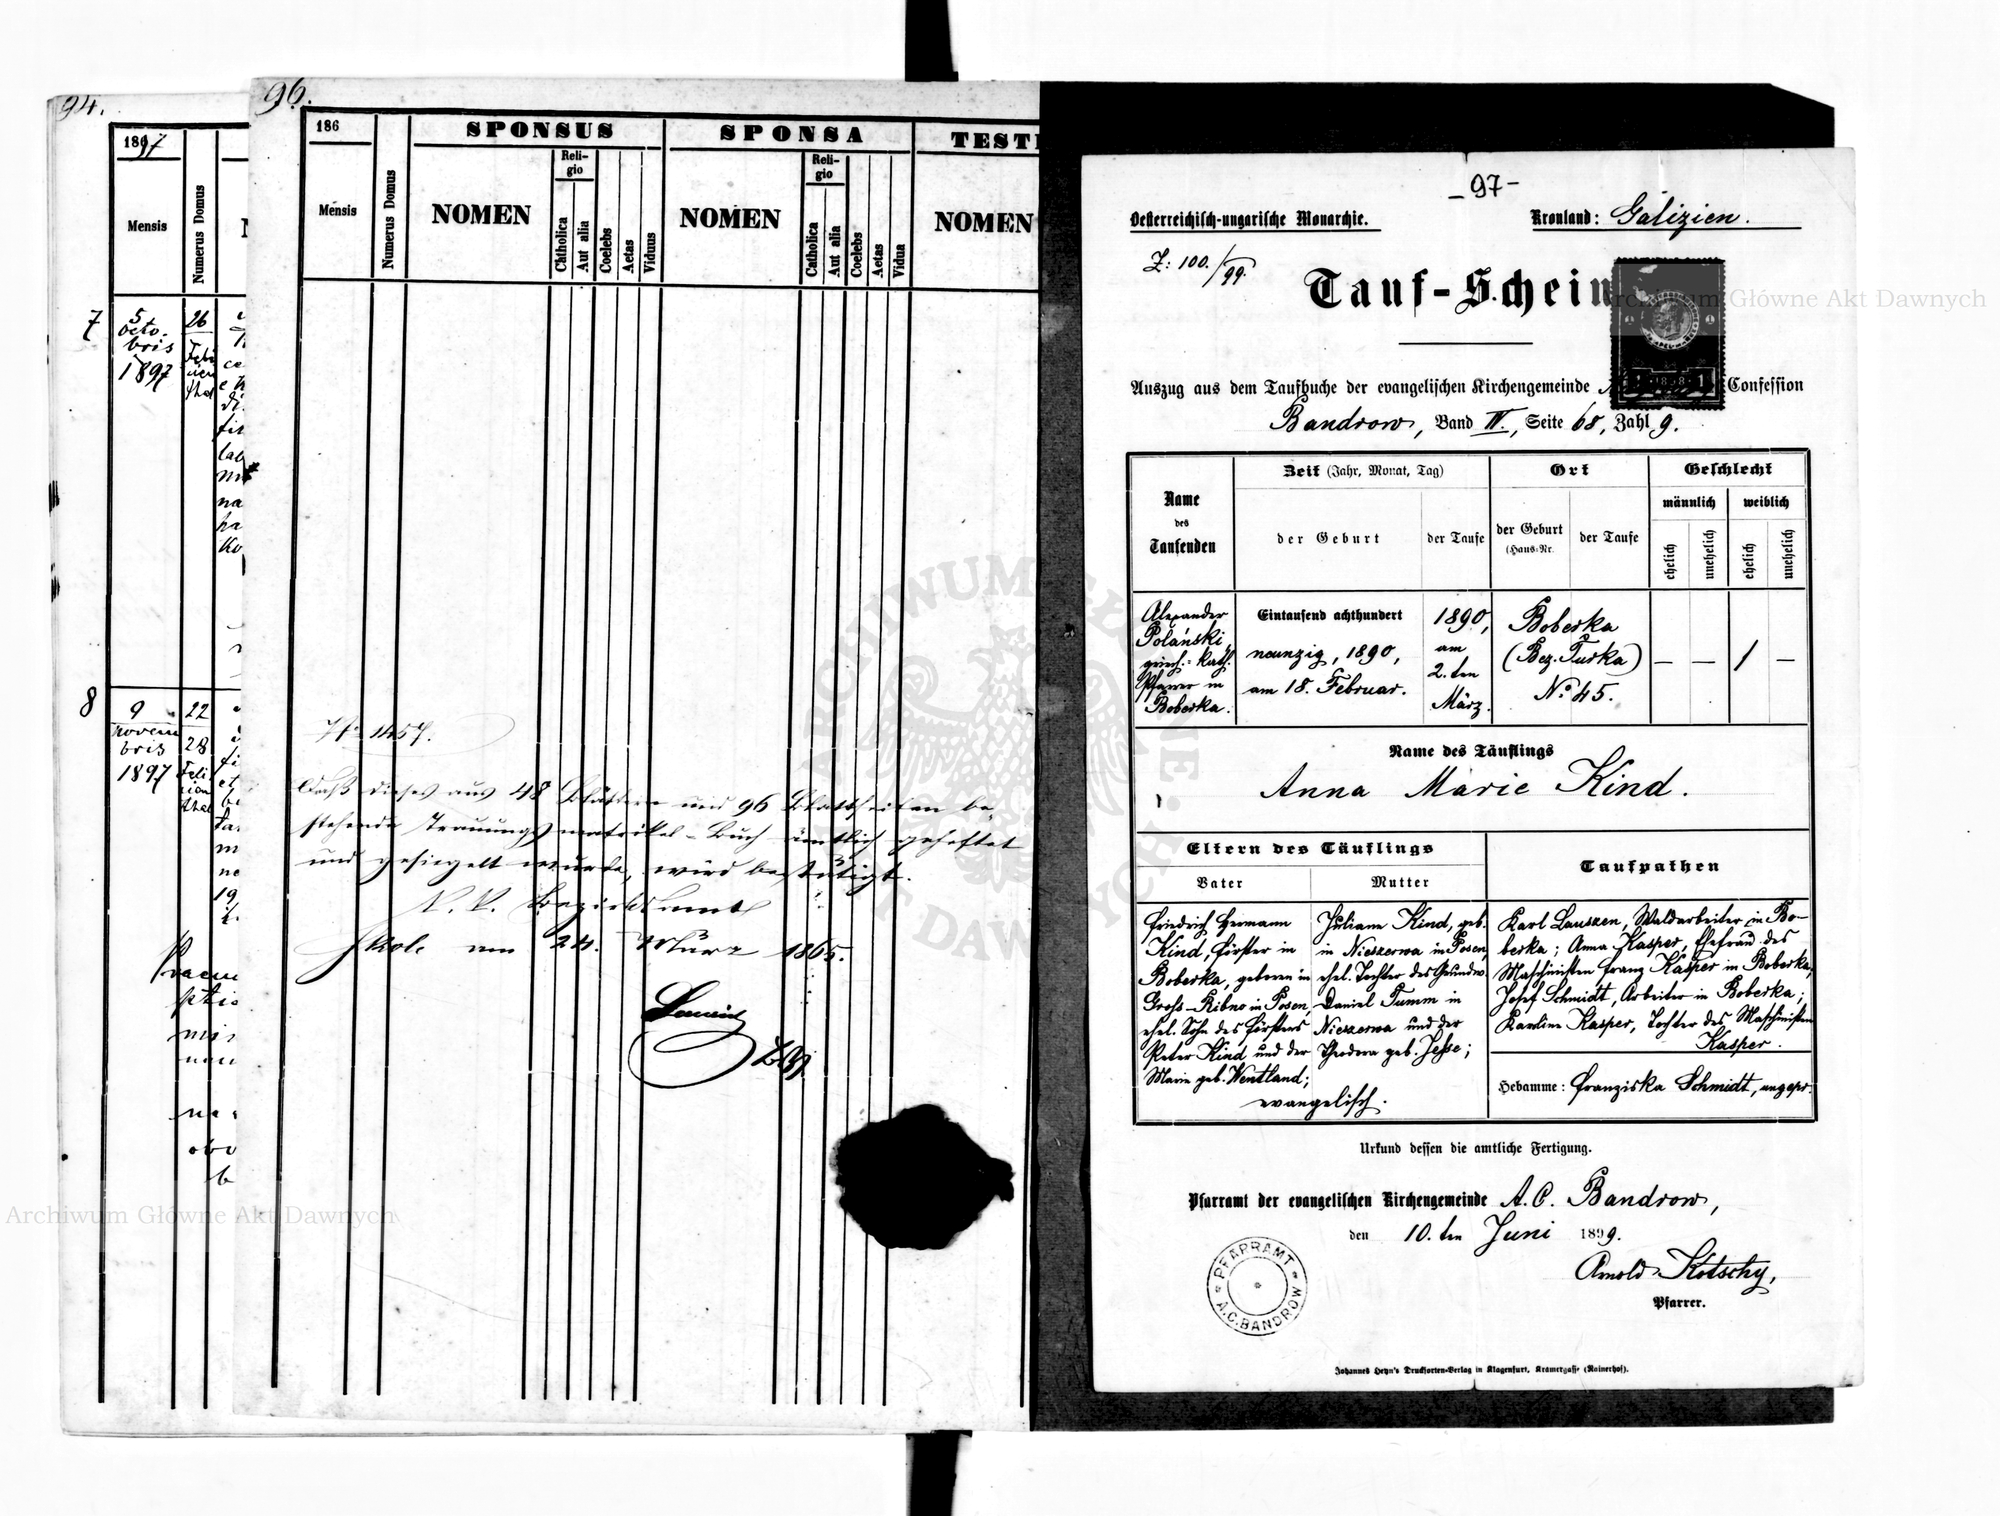 94.
1897
Mensis
Numerus Domus
7
5
octo-
bris
1897
26
8
9
novem
bris
1897
22
28
96.
186
SPONSUS
SPONSA
Mensis
Numerus Domus
NOMEN
Religio
Catholica
Aut alia
Coelebs
Aetas
Viduus
NOMEN
Religio
Catholica
Aut alia
Coelebs
Aetas
Vidua
NOMEN
Daß dieses aus 48 Blättern und 96 Blattseiten be-
stehende Trauungsmatrikel-Buch ämtlich geheftet
und gesiegelt wurde, wird bestätigt.
Bezirksamt
Skole am 24. März 1865.
-97-
Oesterreichisch-ungarische Monarchie.
Kronland: Galizien.
Z: 100./99.
Tauf-Schein
Auszug aus dem Taufbuche der evangelischen Kirchengemeinde Confession
Bandrow, Band IV., Seite 68, Zahl 9.
Name
des
Taufenden
Zeit (Jahr, Monat, Tag)
der Geburt
der Taufe
Ort
der Geburt
(Haus-Nr.
der Taufe
Geschlecht
männlich
weiblich
ehelich
unehelich
ehelich
unehelich
Alexander
Polański,
griech.-kath.
Pfarrer in
Boberka.
Eintausend achthundert
neunzig, 1890,
am 18. Februar.
1890,
am
2. ten
März.
Boberka
(Bez. Turka)
No 45.
— — / —
Name des Täuflings
Anna Marie Kind.
Eltern des Täuflings
Vater
Mutter
Taufpathen
Friedrich Hermann
Kind, Förster in
Boberka, geboren in
Gross-Ribno in Posen,
ehel. Sohn des Försters
Peter Kind und der
Marie geb. Wentland;
Juliane Kind, geb.
in Nieszerwa in Posen,
ehel. Tochter des Grundw.
Daniel Tumm in
Nieszerwa und der
Theodora geb. Jesse;
evangelisch.
Karl Lauszen, Waldarbeiter in Bo-
berka; Anna Kasper, Ehefrau des
Maschinisten Franz Kasper in Boberka;
Josef Schmidt, Arbeiter in Boberka;
Karoline Kasper, Tochter des Maschinisten
Kasper.
Hebamme: Franziska Schmidt, ungepr.
Urkund dessen die amtliche Fertigung.
Pfarramt der evangelischen Kirchengemeinde A. C. Bandrow,
den 10. ten Juni 1899.
Arnold Kotschy,
Pfarrer.
PFARRAMT
A.C. BANDROW
Johannes Heyn's Drucksorten-Verlag in Klagenfurt, Kramergasse (Rainerhof).
Archiwum Główne Akt Dawnych
Archiwum Główne Akt Dawnych
ARCHIWUM GŁÓWNE AKT DAWNYCH